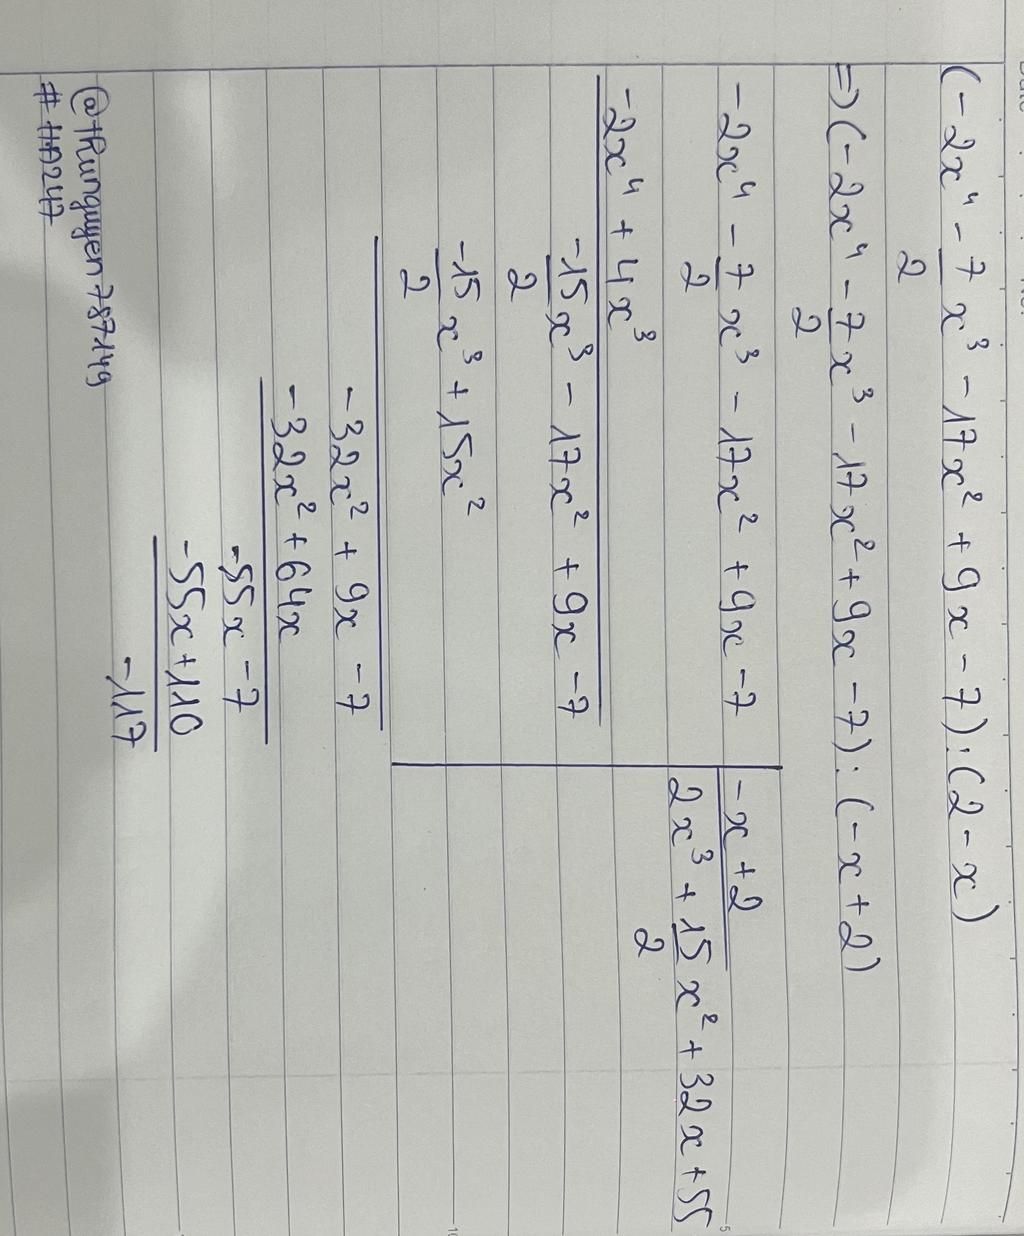 (-2x⁴ - 7/2 x³ - 17x² + 9x - 7) : (2 - x)
=> (-2x⁴ - 7/2 x³ - 17x² + 9x - 7) : (-x + 2)
-2x⁴ - 7/2 x³ - 17x² + 9x - 7 | -x + 2
-2x⁴ + 4x³ | 2x³ + 15/2 x² + 32x + 55
-15/2 x³ - 17x² + 9x - 7
-15/2 x³ + 15x²
-32x² + 9x - 7
-32x² + 64x
-55x - 7
-55x + 110
-117
@tRunguyen787149